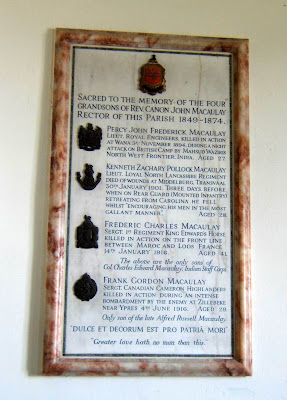 SACRED TO THE MEMORY OF THE FOUR
GRANDSONS OF REV. CANON JOHN MACAULAY
RECTOR OF THIS PARISH 1849-1874.
PERCY JOHN FREDERICK MACAULAY
LIEUT. ROYAL ENGINEERS, KILLED IN ACTION
AT WANA 3RD NOVEMBER 1894, DURING A NIGHT
ATTACK ON BRITISH CAMP BY MAHSUD WAZIRIS
NORTH WEST FRONTIER, INDIA. AGED 27.
KENNETH ZACHARY POLLOCK MACAULAY
LIEUT. LOYAL NORTH LANCASHIRE REGIMENT
DIED OF WOUNDS AT MIDDELBURG, TRANSVAAL
30TH JANUARY 1901. THREE DAYS BEFORE
WHEN ON REAR GUARD (MOUNTED INFANTRY)
RETREATING FROM CAROLINA HE FELL
WHILST "ENCOURAGING HIS MEN IN THE MOST
GALLANT MANNER." AGED 28.
FREDERIC CHARLES MACAULAY
SERGT. 1ST REGIMENT KING EDWARDS HORSE
KILLED IN ACTION ON THE FRONT LINE
BETWEEN MAROC AND LOOS FRANCE
14TH JANUARY 1916. AGED 41
The above are the only sons of
Col. Charles Edward Macaulay, Indian Staff Corps.
FRANK GORDON MACAULAY
SERGT. CANADIAN CAMERON HIGHLANDERS
KILLED IN ACTION DURING AN INTENSE
BOMBARDMENT BY THE ENEMY AT ZILLEBEKE
NEAR YPRES 4TH JUNE 1916. AGED 29.
Only son of the late Alfred Rossell Macaulay.
"DULCE ET DECORUM EST PRO PATRIA MORI"
"Greater love hath no man than this."